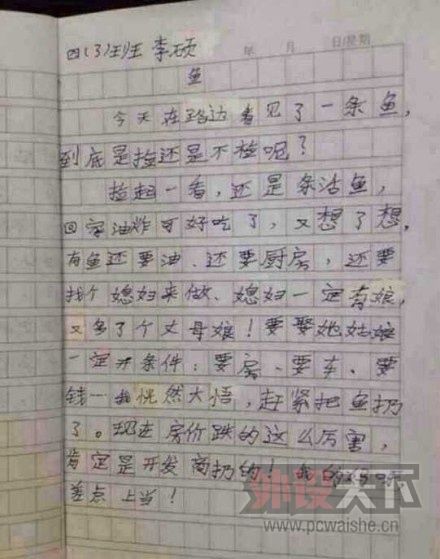 四(3)班 李硕
年 月 日/星期
鱼
今天在路边看见了一条鱼,
到底是捡还是不捡呢?
捡起一看,还是条活鱼,
回家油炸可好吃了,又想了想,
有鱼还要油、还要厨房,还要
找个媳妇来做、媳妇一定有娘,
又多了个丈母娘!要娶她姑娘
一定开条件:要房、要车、要
钱一我恍然大悟,赶紧把鱼扔
了。现在房价跌的这么厉害,
肯定是开发商扔的!我的
差点上当!
外设天下
www.pcwaishe.cn